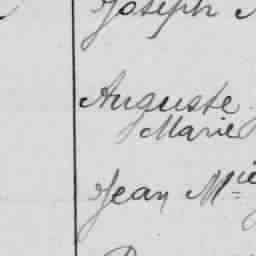 Joseph
Auguste
Marie
Jean Mie